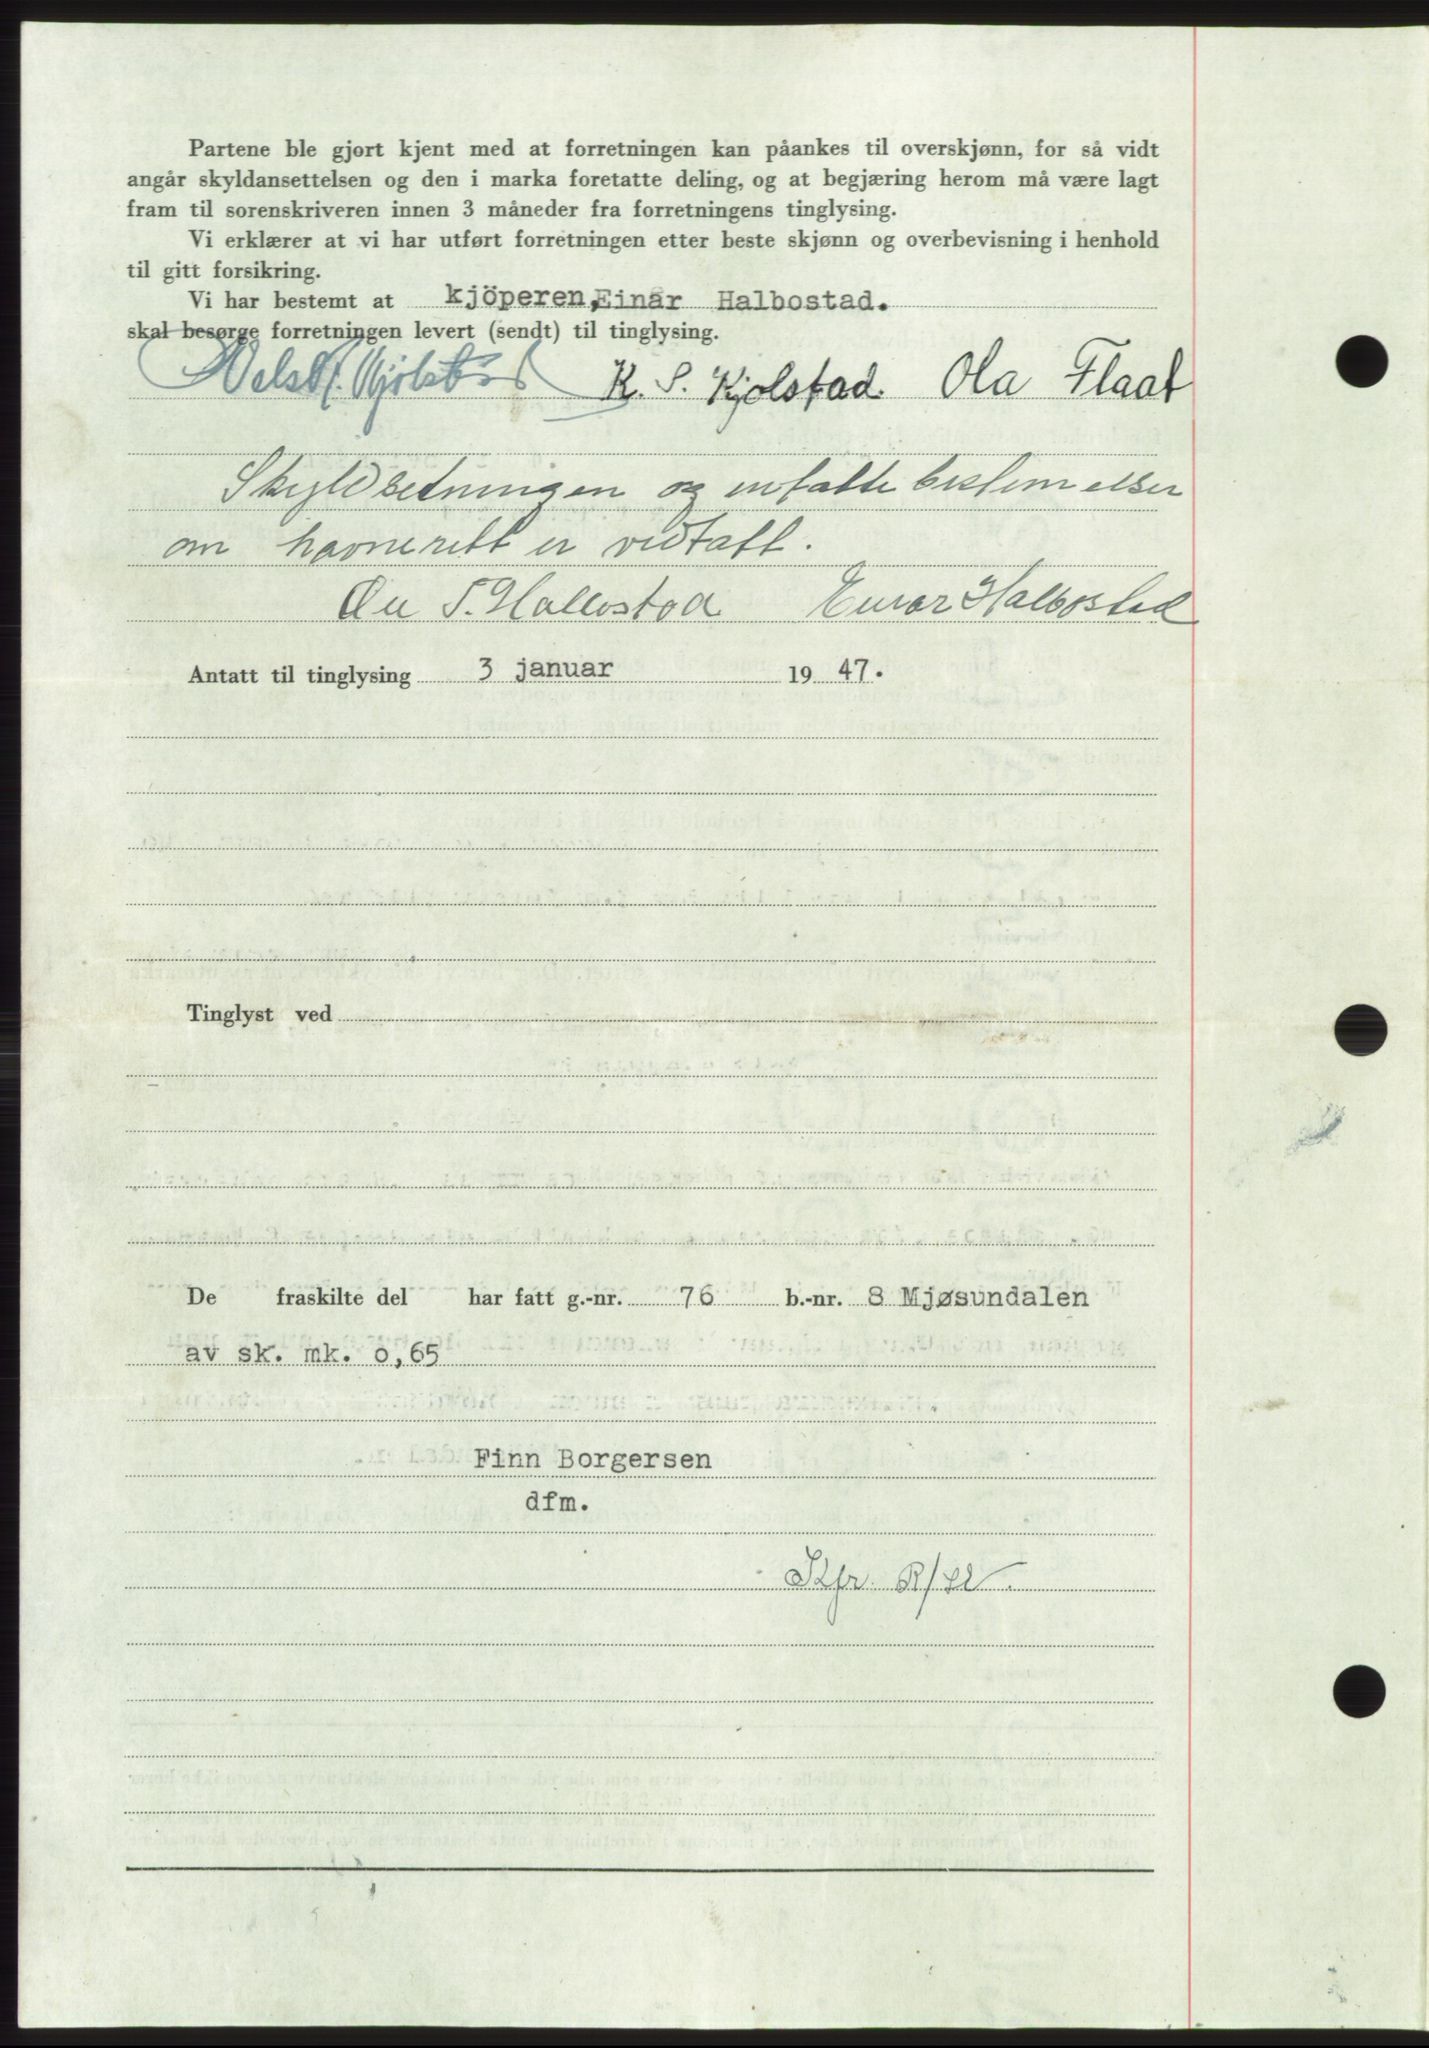 Partene ble gjort kjent med at forretningen kan påankes til overskjønn, for så vidt
angår skyldansettelsen og den i marka foretatte deling, og at begjæring herom må være lagt
fram til sorenskriveren innen 3 måneder fra forretningens tinglysing.
Vi erklærer at vi har utført forretningen etter beste skjønn og overbevisning i henhold
til gitt forsikring.
Vi har bestemt at kjöperen, Einar Halbostad.
skal besørge forretningen levert (sendt) til tinglysing.
K. S. Kjolstad. Ola Flaat
Skyldsetningen og innfatte bestemelser
om havnerett er vedtatt.
S. Hallbostad Einar Halbostad
Antatt til tinglysing 3 januar 19 47.
Tinglyst ved
De fraskilte del har fatt g.-nr. 76 b.-nr. 8 Mjøsundalen
av sk. mk. 0,65
Finn Borgersen
dfm.